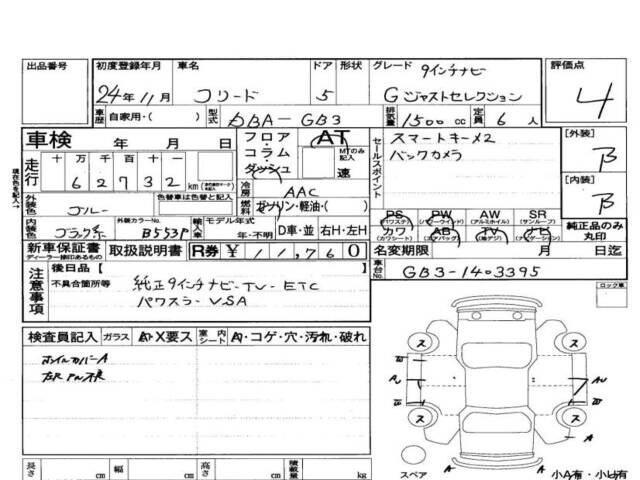 出品番号 初度登録年月 車名 ドア 形状 グレード 9インチナビ 評価点
24年11月 フリード 5 Gジャストセレクション 4
車歴 自家用・( ) 型式 DBA-GB3 排気量 1500cc 定員 6人
車検 年 月 日
フロア・コラム・ダッシュ AT MTのみ記入 速
セールスポイント スマートキー×2
バックカメラ
[外装] B
[内装] B
現在色を記入→
走行 十万千百十一
62732 km
冷房 AAC
外装色 ブルー 色替車は色替と記入
燃料 ガソリン・軽油・( )
内装色 ブラック系 外装カラーNo. B553P 輸入車 モデル年式 年・不明 D車・並 右H・左H
PS (パワステ) PW (パワーウインド) AW (アルミホイル) SR (サンルーフ)
カワ (カワシート) AB (エアバック) TV (地デジ) ナビ (ナビゲーション)
純正品のみ丸印
新車保証書 ディーラー捺印あるもの 取扱説明書 R券 ¥11,760
名変期限 月 日迄
車台No. GB3-1403395
注意事項 後日品【 】
不具合箇所等 純正9インチナビ-TV-ETC
パワスラ-VSA
ロック車
検査員記入 ガラス A・X要ス 室内シート A・コゲ・穴・汚れ・破れ
ホイルカバーA
ス ス
ス ス
スペア
A A
小A有・小U有
長さ cm 幅 cm 高さ cm 積載量 kg